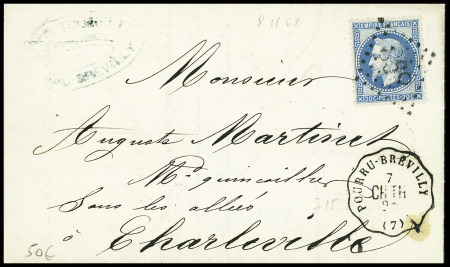 8 11 68
EMPIRE FRANÇAIS
20 C POSTES 20 C
Monsieur
Auguste Martinet
Md quincailler
Sous les allées
à Charleville
POURRU-BRÉVILLY
7
(7)
50€